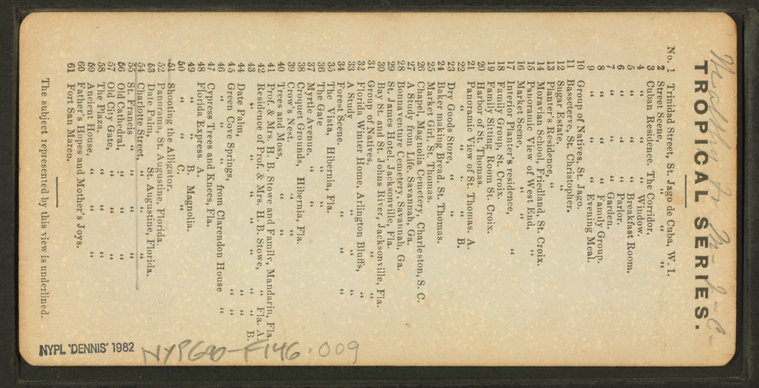 TROPICAL SERIES.
No. 1 Trinidad Street, St. Jago de Cuba, W. I.
2 Street Scene, " "
3 Cuban Residence. The Corridor.
4 " " Window.
5 " " Breakfast Room.
6 " " Parlor.
7 " " Garden.
8 " " Family Group.
9 " " Evening Meal.
10 Group of Natives, St. Jago.
11 Basseterve, St. Christopher.
12 Sugar Estate, "
13 Planter's Residence, "
14 Moravian School, Friedland, St. Croix.
15 Panoramic View of West End, "
16 Market Scene, "
17 Interior Planter's residence, "
18 Family Group, St. Croix.
19 Family Sitting Room St. Croix.
20 Harbor of St. Thomas.
21 Panoramic View of St. Thomas. A.
22 " " " B.
23 Dry Goods Store, "
24 Baker making Bread, St. Thomas.
25 Market Girl, St. Thomas.
26 Chapel, Magnolia Cemetery, Charleston, S. C.
27 A Study from Life, Savannah, Ga.
28 Bonnaventure Cemetery, Savannah, Ga.
29 St. James Hotel, Jacksonville, Fla.
30 Bay St. and St. Johns River, Jacksonville, Fla.
31 Group of Natives, " "
32 Florida Winter Home, Arlington Bluffs, "
33 A Study " "
34 Forest Scene. " "
35 The Vista, Hibernia, Fla.
36 The Gate " "
37 Myrtle Avenue, " "
38 Croquet Grounds, Hibernia, Fla.
39 Crow's Nest, " "
40 Trees and Moss, " "
41 Prof. & Mrs. H. B. Stowe and Family, Mandarin, Fla.
42 Residence of Prof. & Mrs. H. B. Stowe, " Fla. A.
43 " " " " B.
44 Date Palm, " "
45 Green Cove Springs, " "
46 " " from Clarendon House "
47 Cypress Trees and Knees, Fla.
48 Florida Express. A.
49 " " B. Magnolia.
50 " " C.
51 Shooting the Alligator.
52 Panorama, St. Augustine, Florida.
53 Date Palm, St. Augustine, Florida.
54 Charlotte Street, " "
55 St. Francis " " "
56 Old Cathedral, " "
57 Old City Gate, " "
58 The Plaza, " "
59 Ancient House, " "
60 Father's Hopes and Mother's Joys.
61 Fort San Marco.
The subject represented by this view is underlined.
NYPL 'DENNIS' 1982
NYPG90-F146.009